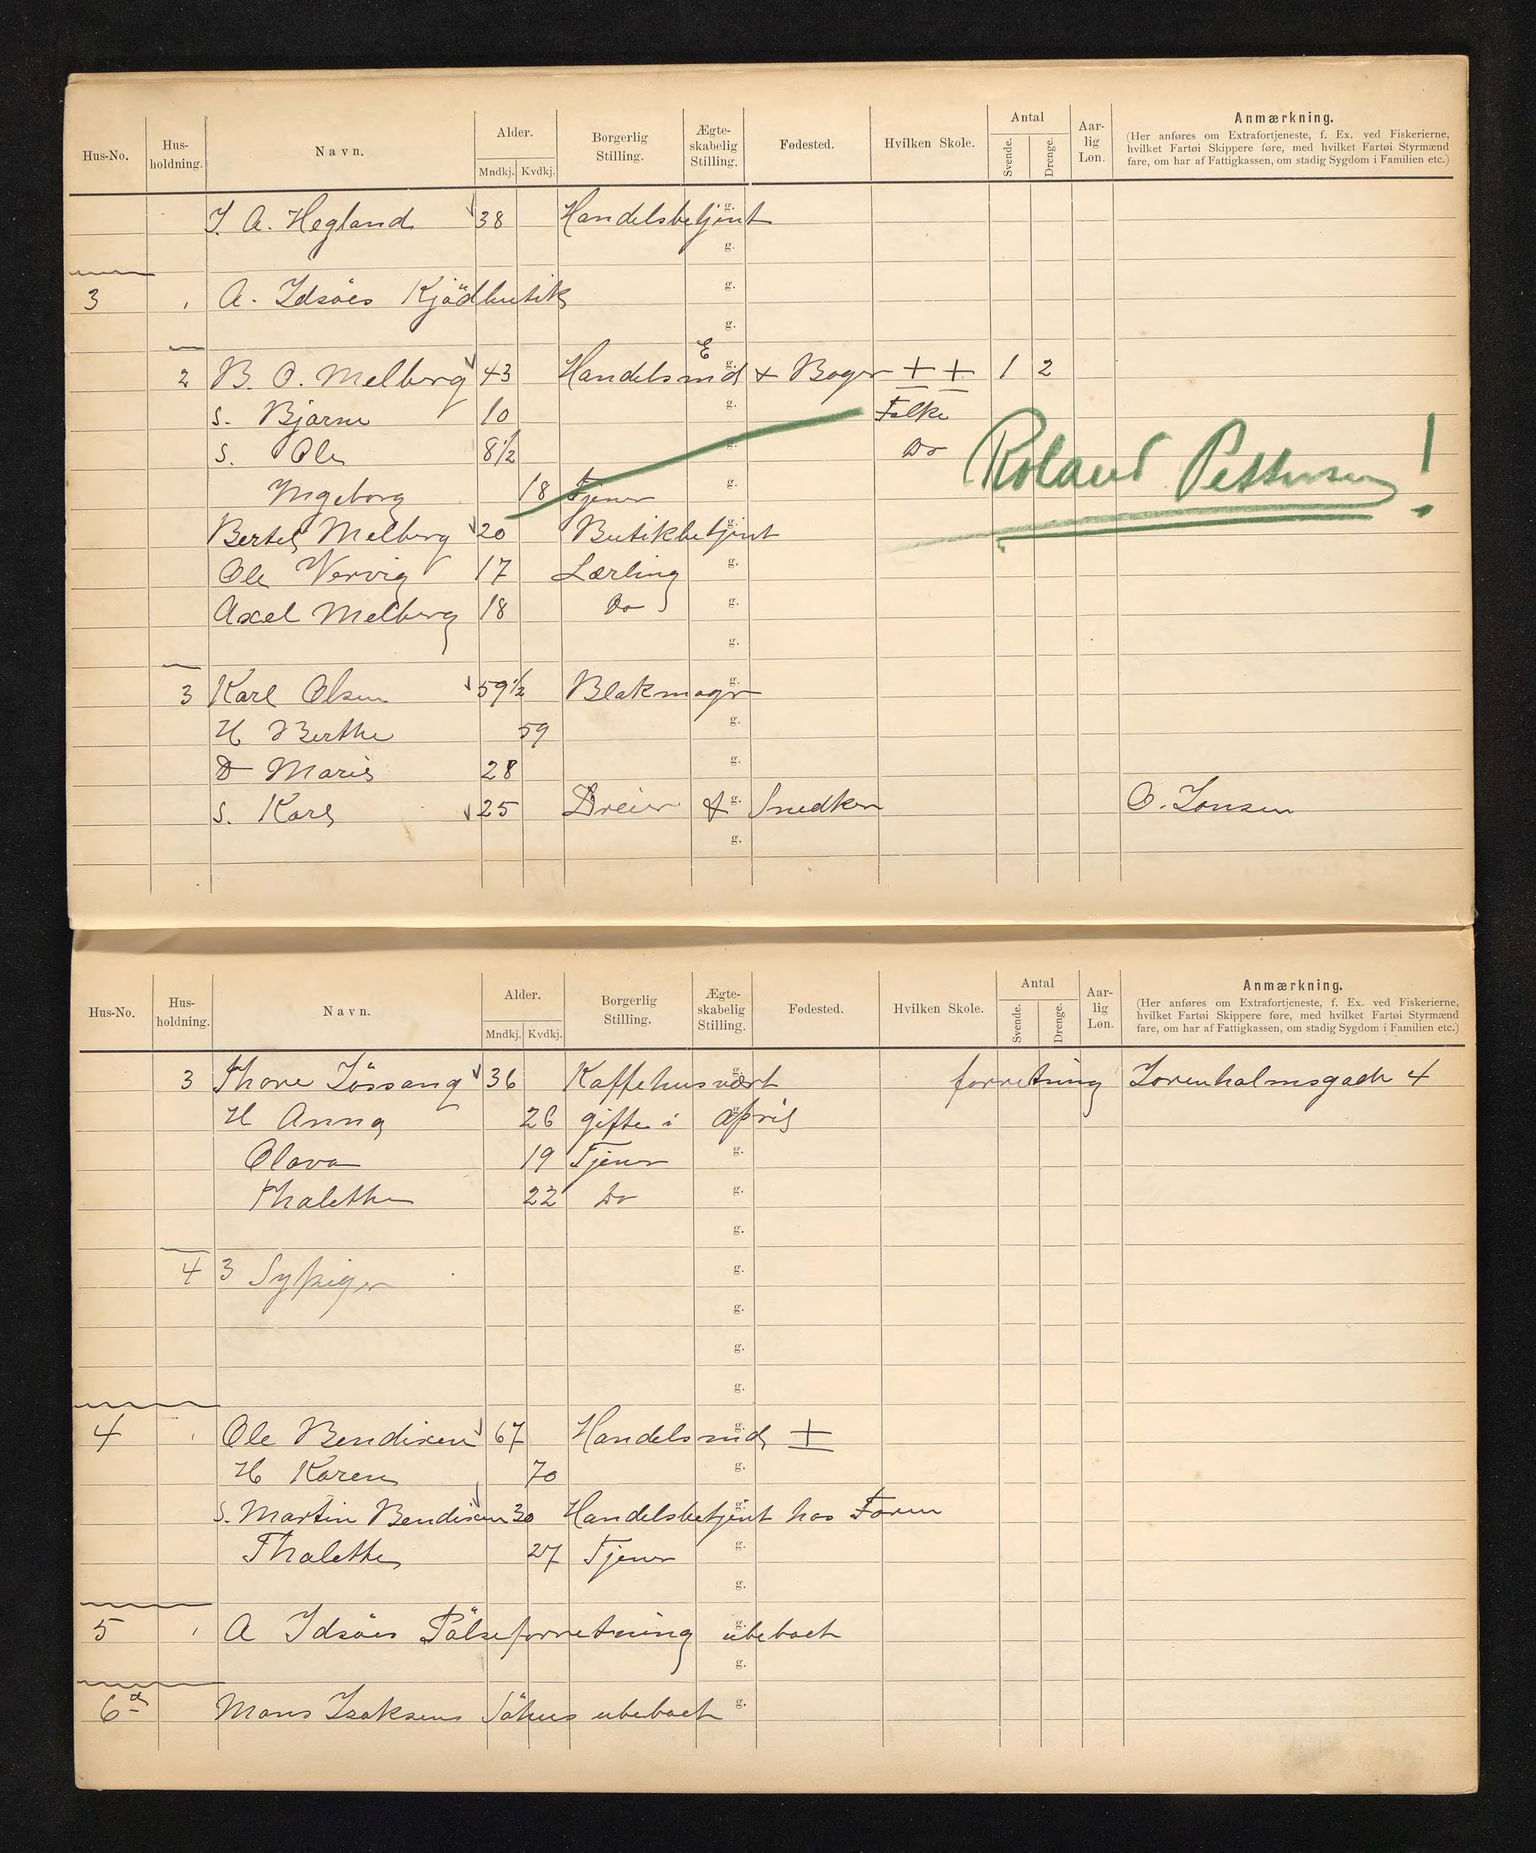 Hus-No. Hus-holdning. Navn. Alder. Mndkj. Kvdkj. Borgerlig Stilling. Ægte-skabelig Stilling. Fødested. Hvilken Skole. Antal Svende. Drenge. Aar-lig Løn. Anmærkning.
(Her anføres om Extrafortjeneste, f. Ex. ved Fiskerierne,
hvilket Fartøi Skippere føre, med hvilket Fartøi Styrmænd
fare, om har af Fattigkassen, om stadig Sygdom i Familien etc.)
J. A. Hegland 38 Handelsbetjent g.
g.
3 A. Idsöes Kjödbutik g.
g.
E
2 B. O. Melberg 43 Handelsmd g. + Bager + + 1 2
S. Bjarne 10 g. Folke
S. Ole 8 1/2 g. Do
Ingeborg 18 Tjener g.
Roland Pettersen!
Bertel Melberg 20 Butikbetjent g.
Ole Vervig 17 Lærling g.
Axel Melberg 18 Do g.
g.
3 Karl Olsen 59 1/2 Blokmager g.
H Berthe 59 g.
D Marie 28 g.
S. Karl 25 Dreier & g. Snedker O. Jonsen
g.
Hus-No. Hus-holdning. Navn. Alder. Mndkj. Kvdkj. Borgerlig Stilling. Ægte-skabelig Stilling. Fødested. Hvilken Skole. Antal Svende. Drenge. Aar-lig Løn. Anmærkning.
(Her anføres om Extrafortjeneste, f. Ex. ved Fiskerierne,
hvilket Fartøi Skippere føre, med hvilket Fartøi Styrmænd
fare, om har af Fattigkassen, om stadig Sygdom i Familien etc.)
3 Thore Jössang 36 Kaffehusvært g. forretning 4
H Anna 26 gifte i April g.
Olava 19 Tjener g.
Thalette 22 Do g.
g.
4 3 Sypiger g.
g.
g.
g.
4 Ole Bendixen 67 Handelsmd g. +
H Karen 70 g.
S. Martin Bendixen 30 Handelsbetjent g. hos Faren
Thalette 27 Tjener g.
g.
5 A Idsöes Pölseforretning g. ubeboet
g.
6 Mons Isaksens Söhus ubeboet g.